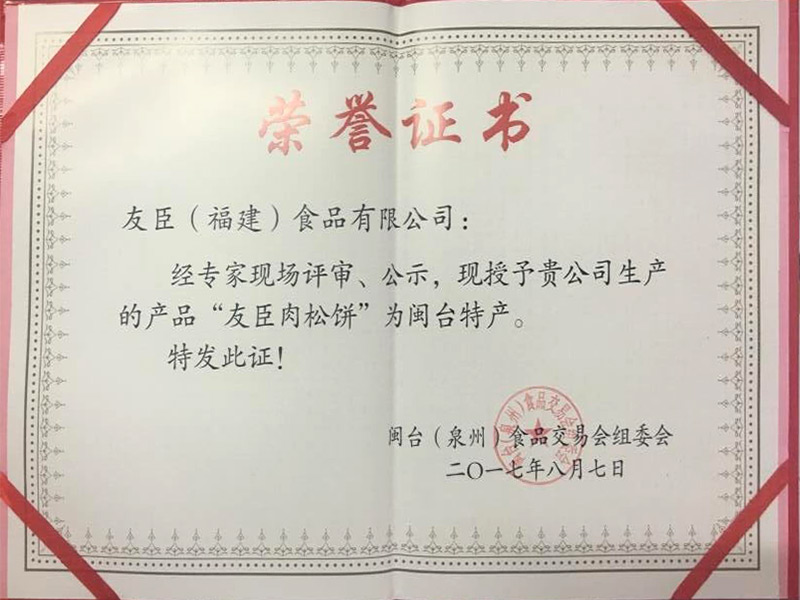 荣誉证书
友臣（福建）食品有限公司：
经专家现场评审、公示，现授予贵公司生产
的产品“友臣肉松饼”为闽台特产。
特发此证！
闽台（泉州）食品交易会组委会
二〇一七年八月七日
闽台（泉州）食品交易会组委会